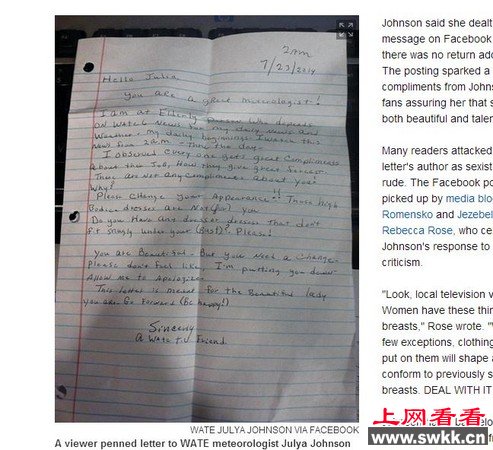 2am
7/23/2014
Hello Julia
You are a great meteorologist!
I am at Elderly Person who depends
ON WATE6 News for my daily News and
Weather. My daily beginnings I watch this
News from 2am - Thru the day.
I observed every one gets great Compliments
About their Job, How they give great Service.
There are Not any Compliments About you!
Why?
Please Change your Appearance!! Those high
bodice dresses are Not (for) you
Do you Have any dresser dresses that don't
fit snugly under your (Bust)? Please!
You are Beautiful - But you Need a Change -
Please don't feel like I'm putting you down -
Allow me to Apologize -
This Letter is meant for the Beautiful lady
you are. Go Forward (Be happy!)
Sincerly
A Wate T.V. Friend
WATE JULYA JOHNSON VIA FACEBOOK
A viewer penned letter to WATE meteorologist Julya Johnson
Johnson said she dealt
message on Facebook
there was no return add
The posting sparked a
compliments from Johns
fans assuring her that s
both beautiful and talen
Many readers attacked
letter's author as sexist
rude. The Facebook po
picked up by media blo
Romensko and Jezebel
Rebecca Rose, who ce
Johnson's response to
criticism.
"Look, local television v
Women have these thin
breasts," Rose wrote. "
few exceptions, clothing
put on them will shape a
conform to previously s
breasts. DEAL WITH IT
上网看看
www.swkk.cn